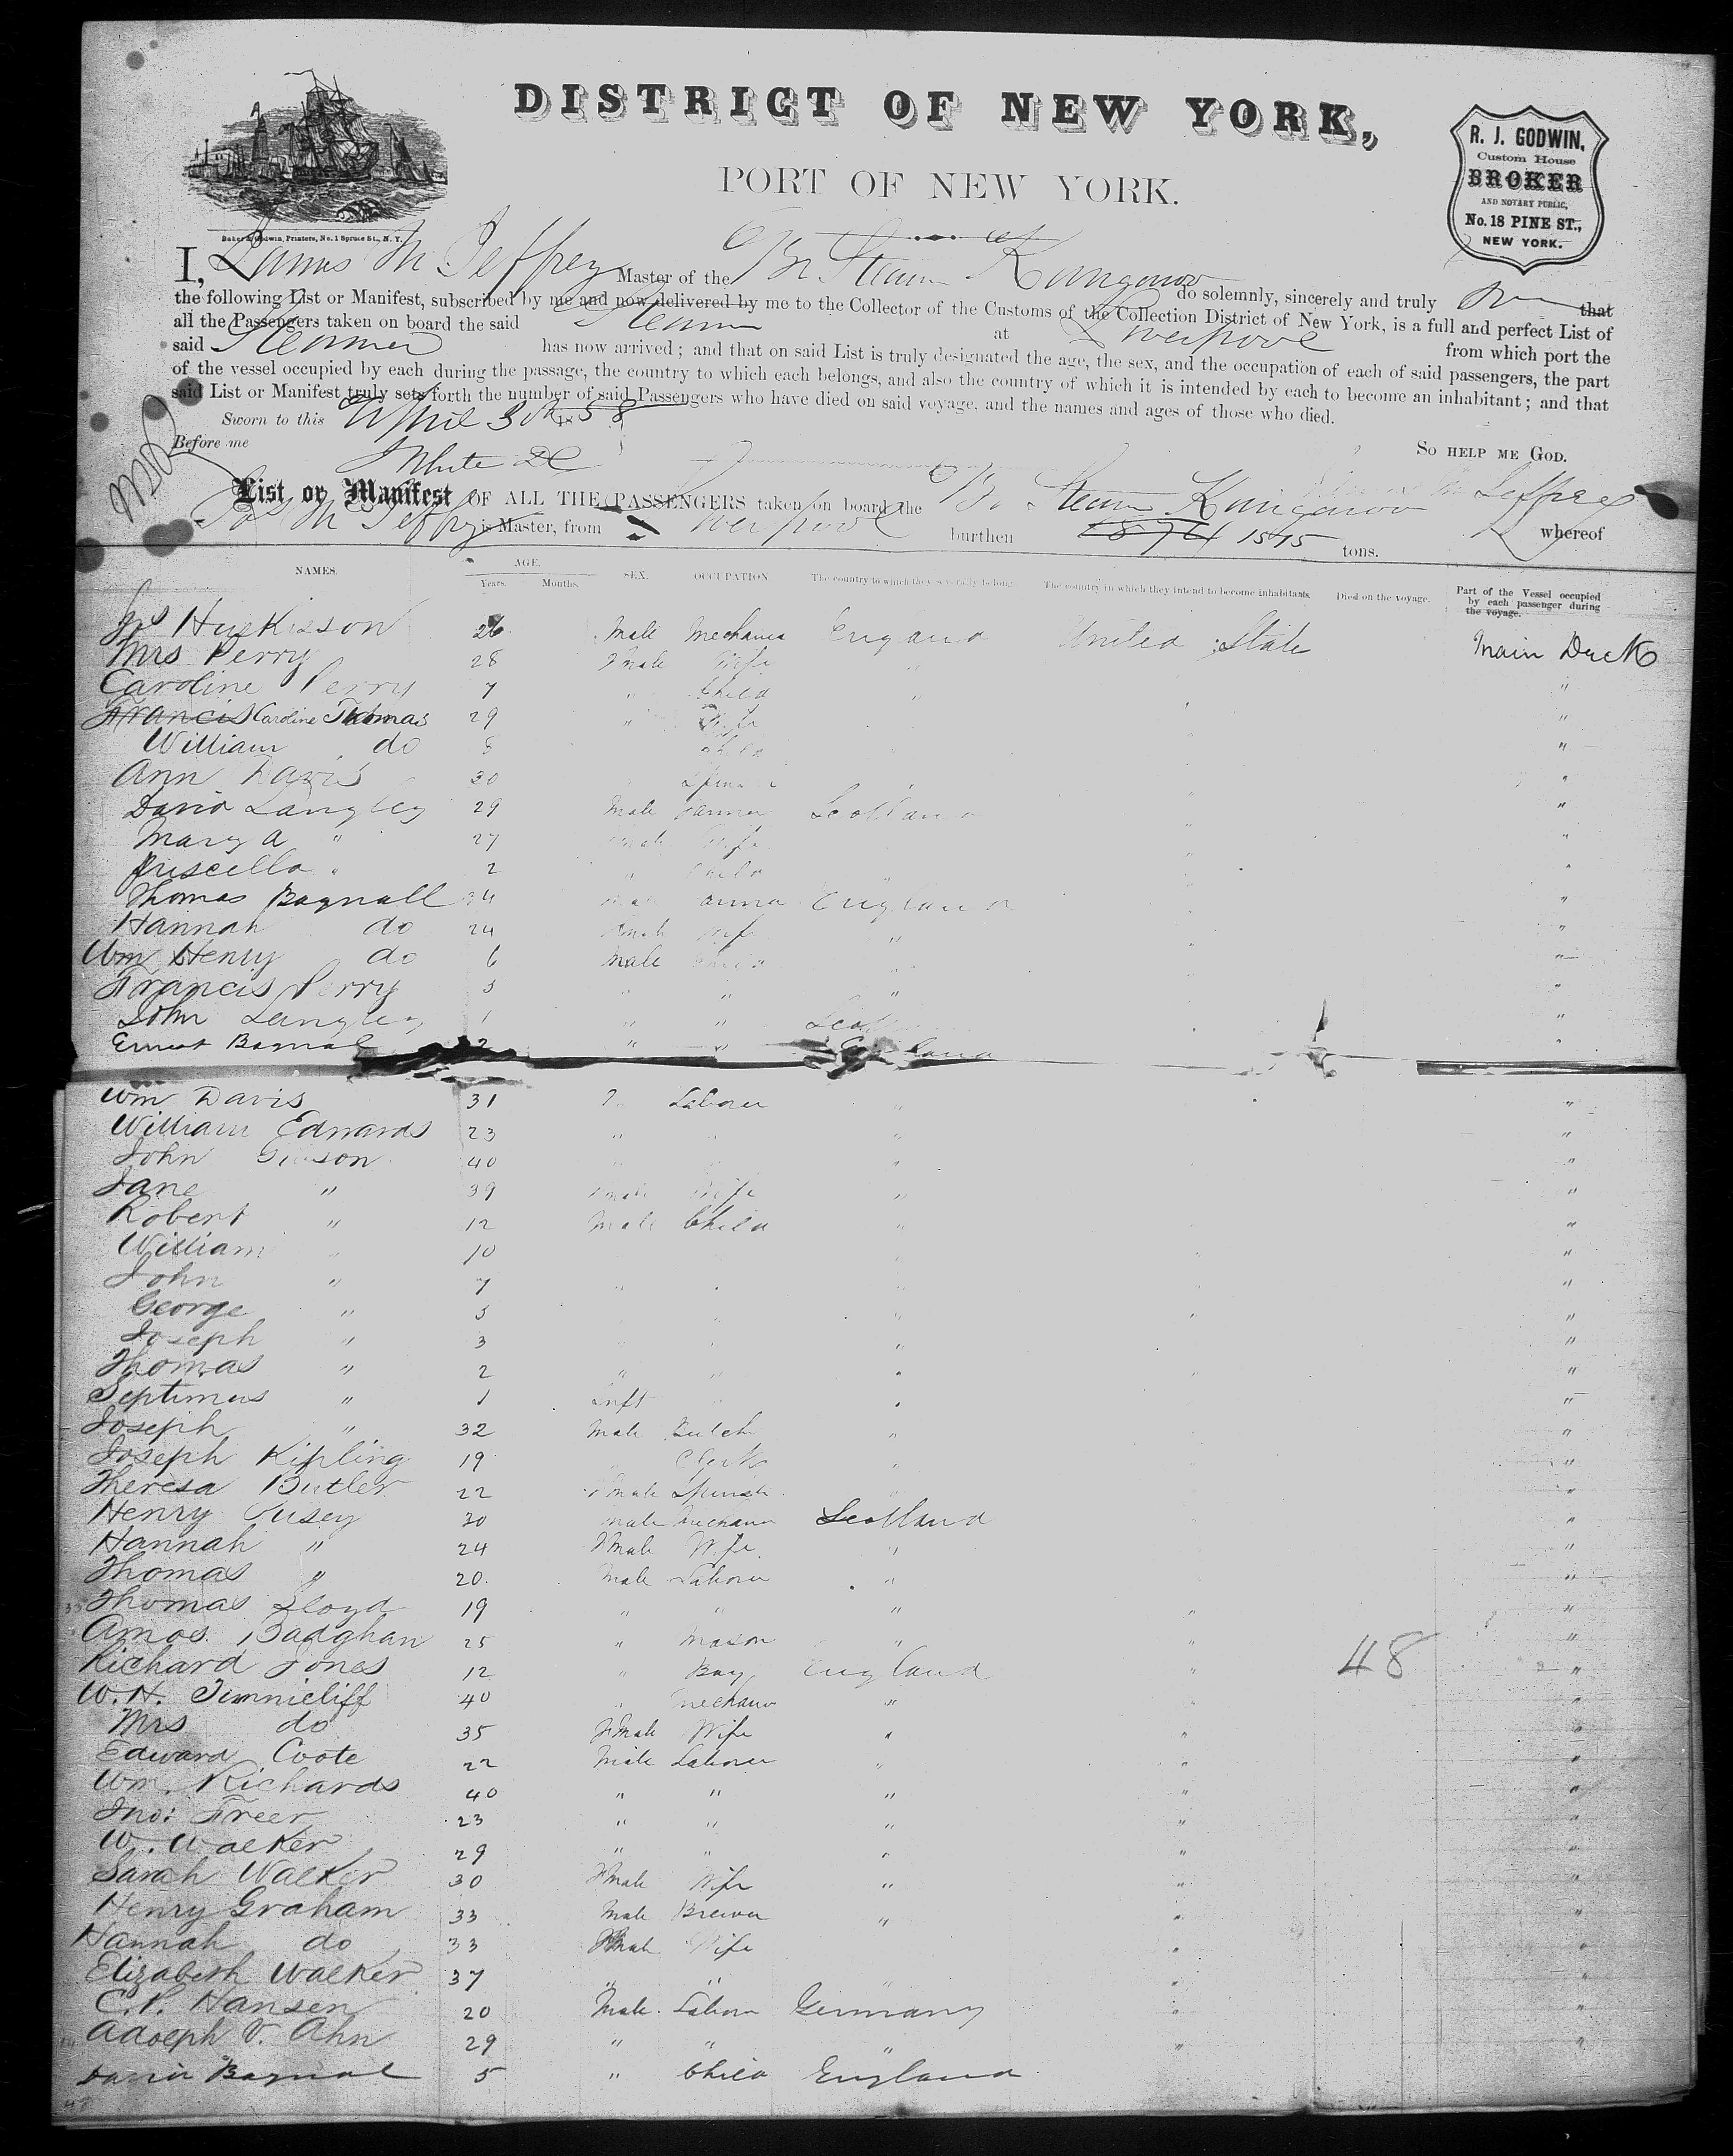 DISTRICT OF NEW YORK,
PORT OF NEW YORK.
R. J. GODWIN,
Custom House
BROKER
AND NOTARY PUBLIC,
No. 18 PINE ST.,
NEW YORK.
Baker & Godwin, Printers, No. 1 Spruce St., N. Y.
I, James M Jeffrey Master of the Br Steam Kangaroo do solemnly, sincerely and truly that
the following List or Manifest, subscribed by me and now delivered by me to the Collector of the Customs of the Collection District of New York, is a full and perfect List of
all the Passengers taken on board the said Steam at Liverpool from which port the
said Steamer has now arrived; and that on said List is truly designated the age, the sex, and the occupation of each of said passengers, the part
of the vessel occupied by each during the passage, the country to which each belongs, and also the country of which it is intended by each to become an inhabitant; and that
said List or Manifest truly sets forth the number of said Passengers who have died on said voyage, and the names and ages of those who died.
Sworn to this April 30th 58
Before me White DC
SO HELP ME GOD.
List or Manifest OF ALL THE PASSENGERS taken on board the Br Steam Kangaroo whereof
Jas M Jeffrey is Master, from Liverpool burthen 1874 1575 tons.
NAMES. AGE. Years. Months. SEX. OCCUPATION The country to which they severally belong. The country in which they intend to become inhabitants. Died on the voyage. Part of the Vessel occupied by each passenger during the voyage.
Huskisson 26 Male Mechanic England United State Main Deck
Mrs Perry 28 Fmale Wife " "
Caroline Perry 7 " Child " "
Francis Caroline Thomas 29 " Wife "
William do 8 Child "
Ann Davis 30 "
David Langley 29 Male Farmer Scotland "
Mary A " 27 Fmale Wife "
Priscella " 2 " Child "
Thomas Bagnall 34 Male Farmer England "
Hannah do 24 Fmale Wife " "
Wm Henry do 6 Male Child " "
Francis Perry 5 " " " "
John Langley 1 " " "
Ernest Bagnal 2 " " England "
Wm Davis 31 " Laborer " "
William Edwards 23 " " " "
John 40 " "
Jane " 39 Fmale Wife " "
Robert " 12 Male Child " "
William " 10 "
John " 7 " "
George " 5 " "
Joseph " 3 " "
Thomas " 2 " " " "
Septimus " 1 Inft " "
Joseph " 32 Male Butch " "
Joseph Kipling 19 Clerk " "
Theresa Butler 22 Fmale Spinster "
Henry Pusey 30 Male Mechanic Scotland "
Hannah " 24 Fmale Wife " "
Thomas " 20 Male Laborer " "
Thomas Lloyd 19 " " " " "
Amos Badghan 25 " Mason " " "
Richard Jones 12 " Boy England " 48 "
W. H. Timnicliff 40 " Mechanic " " "
Mrs do 35 Fmale Wife " " "
Edward Coote 22 Male Laborer " " "
Wm. Richards 40 " " " " "
Jno: Freer 23 " " " " "
W. Walker 29 " " " " "
Sarah Walker 30 Fmale Wife " " "
Henry Graham 33 Male Brewer " " "
Hannah do 33 Fmale Wife " "
Elizabeth Walker 37 " " " " "
C. P. Hansen 20 Male Labor Germany " "
Adolph V. Ahn 29 " " " " "
David Bagnal 5 " Child England